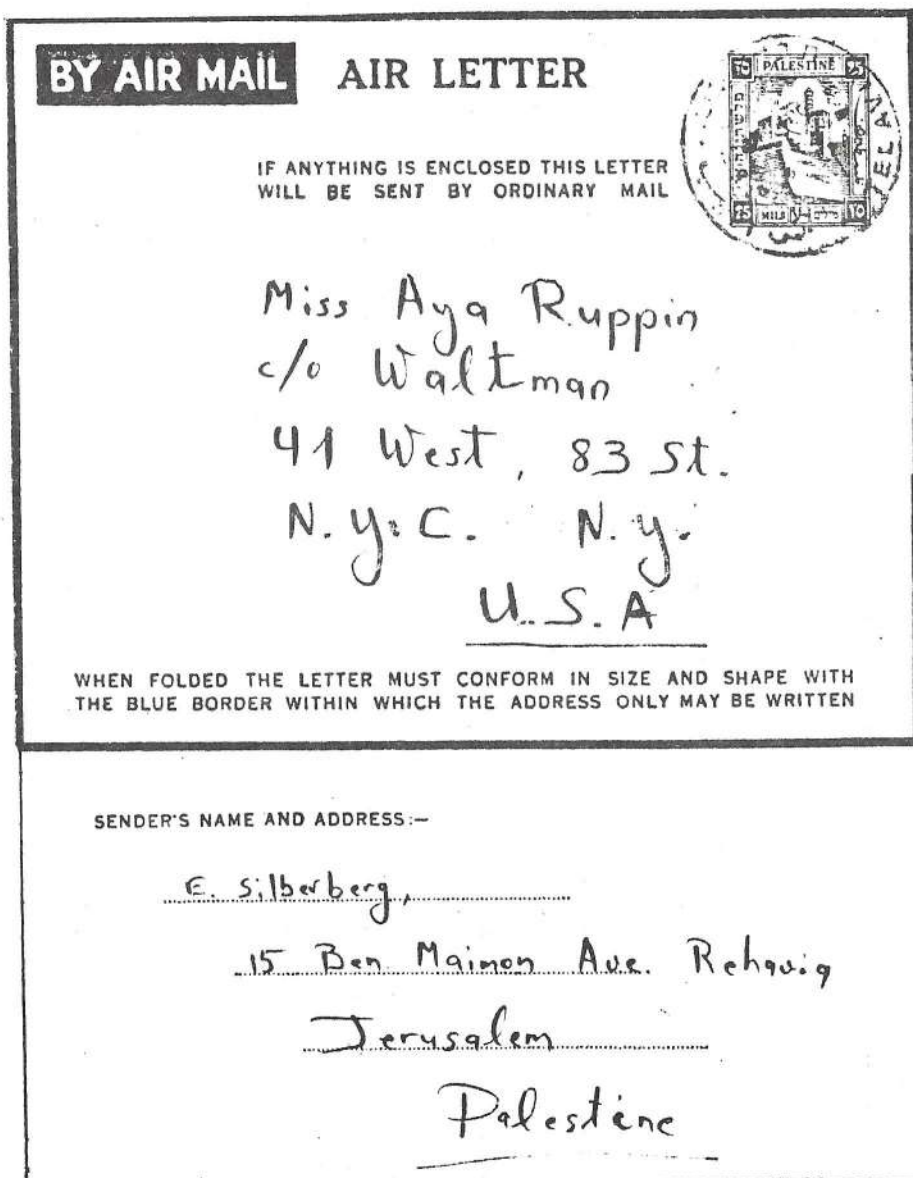 BY AIR MAIL AIR LETTER
PALESTINE
25
25
MILS
IF ANYTHING IS ENCLOSED THIS LETTER
WILL BE SENT BY ORDINARY MAIL
Miss Aya Ruppin
c/o Waltman
41 West, 83 St.
N.Y.C. N.Y.
U.S.A
WHEN FOLDED THE LETTER MUST CONFORM IN SIZE AND SHAPE WITH
THE BLUE BORDER WITHIN WHICH THE ADDRESS ONLY MAY BE WRITTEN
SENDER'S NAME AND ADDRESS:—
E. Silberberg,
15 Ben Maimon Ave. Rehavia
Jerusalem
Palestine